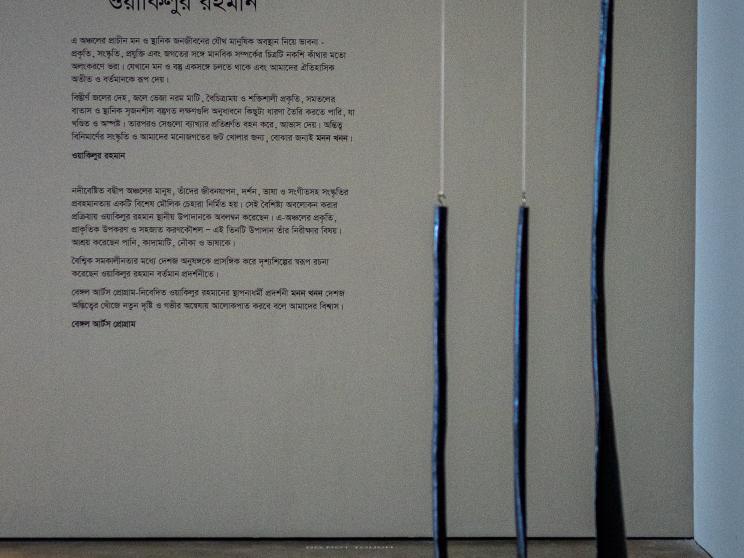 ওয়াকিলুর রহমান
এ অঞ্চলের প্রাচীন মন ও স্থানিক জনজীবনের যৌথ মানুষিক অবস্থান নিয়ে ভাবনা -
প্রকৃতি, সংস্কৃতি, প্রযুক্তি এবং জগতের সঙ্গে মানবিক সম্পর্কের চিত্রটি নকশি কাঁথার মতো
অলংকরণে ভরা। যেখানে মন ও বস্তু একসঙ্গে চলতে থাকে এবং আমাদের ঐতিহাসিক
অতীত ও বর্তমানকে রূপ দেয়।
বিস্তীর্ণ জলের দেহ, জলে ভেজা নরম মাটি, বৈচিত্র্যময় ও শক্তিশালী প্রকৃতি, সমতলের
বাতাস ও স্থানিক সৃজনশীল বস্তুগত লক্ষণগুলি অনুধাবনে কিছুটা ধারণা তৈরি করতে পারি, যা
খণ্ডিত ও অস্পষ্ট। তারপরও সেগুলো ব্যাখ্যার প্রতিশ্রুতি বহন করে, আভাস দেয়। অস্তিত্ব
বিনির্মাণের সংস্কৃতি ও আমাদের মনোজগতের জট খোলার জন্য, বোঝার জন্যই মনন খনন।
ওয়াকিলুর রহমান
নদীবেষ্টিত বদ্বীপ অঞ্চলের মানুষ, তাঁদের জীবনযাপন, দর্শন, ভাষা ও সংগীতসহ সংস্কৃতির
প্রবহমানতায় একটি বিশেষ মৌলিক চেহারা নির্মিত হয়। সেই বৈশিষ্ট্য অবলোকন করার
প্রক্রিয়ায় ওয়াকিলুর রহমান স্থানীয় উপাদানকে অবলম্বন করেছেন। এ-অঞ্চলের প্রকৃতি,
প্রাকৃতিক উপকরণ ও সহজাত করণকৌশল – এই তিনটি উপাদান তাঁর নিরীক্ষার বিষয়।
আশ্রয় করেছেন পানি, কাদামাটি, নৌকা ও ভাষাকে।
বৈশ্বিক সমকালীনতার মধ্যে দেশজ অনুষঙ্গকে প্রাসঙ্গিক করে দৃশ্যশিল্পের স্বরূপ রচনা
করেছেন ওয়াকিলুর রহমান বর্তমান প্রদর্শনীতে।
বেঙ্গল আর্টস প্রোগ্রাম-নিবেদিত ওয়াকিলুর রহমানের স্থাপনাধর্মী প্রদর্শনী মনন খনন দেশজ
অস্তিত্বের খোঁজে নতুন দৃষ্টি ও গভীর অন্বেষায় আলোকপাত করবে বলে আমাদের বিশ্বাস।
বেঙ্গল আর্টস প্রোগ্রাম
DO NOT TOUCH